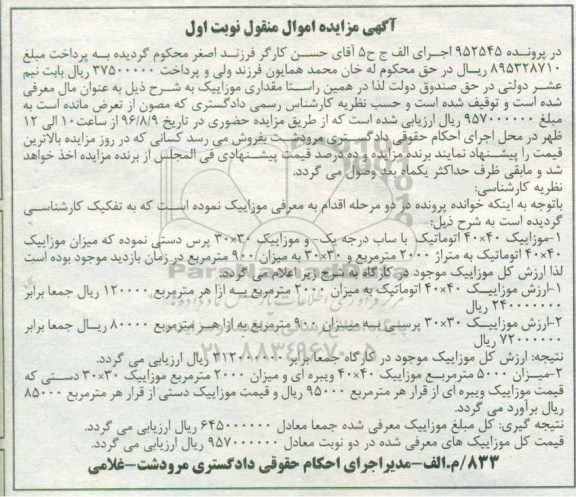 آگهی مزایده اموال منقول نوبت اول
در پرونده ۹۵۲۵۴۵ اجرای الف ج ح۵ آقای حسن کارگر فرزند اصغر محکوم گردیده به پرداخت مبلغ
۸۹۵۳۲۸۷۱۰ ریال در حق محکوم له خان محمد همایون فرزند ولی و پرداخت ۳۷۵۰۰۰۰۰ ریال بابت نیم
عشر دولتی در حق صندوق دولت لذا در همین راستا مقداری موزاییک به شرح ذیل به عنوان مال معرفی
شده است و توقیف شده است و حسب نظریه کارشناس رسمی دادگستری که مصون از تعرض مانده است به
مبلغ ۹۵۷۰۰۰۰۰۰ ریال ارزیابی شده است که از طریق مزایده حضوری در تاریخ ۹۶/۸/۹ از ساعت ۱۰ الی ۱۲
ظهر در محل اجرای احکام حقوقی دادگستری مرودشت بفروش می رسد کسانی که در روز مزایده بالاترین
قیمت را پیشنهاد نمایند برنده مزایده و ده درصد قیمت پیشنهادی فی المجلس از برنده مزایده اخذ خواهد
شد و مابقی ظرف حداکثر یکماه بعد وصول می گردد.
نظریه کارشناسی:
باتوجه به اینکه خوانده پرونده در دو مرحله اقدام به معرفی موزاییک نموده است که به تفکیک کارشناسی
گردیده است به شرح ذیل:
۱-موزاییک ۴۰×۴۰ اتوماتیک با ساب درجه یک و موزاییک ۳۰×۳۰ پرس دستی نموده که میزان موزاییک
۴۰×۴۰ اتوماتیک به متراژ ۲۰۰۰ مترمربع و ۳۰×۳۰ به میزان ۹۰۰ مترمربع در زمان بازدید موجود بوده است
لذا ارزش کل موزاییک موجود در کارگاه به شرح زیر اعلام می گردد.
۱-ارزش موزاییک ۴۰×۴۰ اتوماتیک به میزان ۲۰۰۰ مترمربع به ازا هر مترمربع ۱۲۰۰۰۰ ریال جمعا برابر
۲۴۰۰۰۰۰۰۰ ریال
۲-ارزش موزاییک ۳۰×۳۰ پرسی به میزان ۹۰۰ مترمربع به ازا هر مترمربع ۸۰۰۰۰ ریال جمعا برابر
۷۲۰۰۰۰۰۰ ریال
نتیجه: ارزش کل موزاییک موجود در کارگاه جمعا برابر ۳۱۲۰۰۰۰۰۰ ریال ارزیابی می گردد.
۲-میزان ۵۰۰۰ مترمربع موزاییک ۴۰×۴۰ ویبره ای و میزان ۲۰۰۰ مترمربع موزاییک ۳۰×۳۰ دستی که
قیمت موزاییک ویبره ای از قرار هر مترمربع ۹۵۰۰۰ ریال و قیمت موزاییک دستی از قرار هر مترمربع ۸۵۰۰۰
ریال برآورد می گردد.
نتیجه گیری: کل مبلغ موزاییک معرفی شده جمعا معادل ۶۴۵۰۰۰۰۰۰ ریال ارزیابی می گردد.
قیمت کل موزاییک های معرفی شده در دو نوبت معادل ۹۵۷۰۰۰۰۰۰ ریال ارزیابی می گردد.
۸۳۳/م.الف-مدیراجرای احکام حقوقی دادگستری مرودشت-غلامی